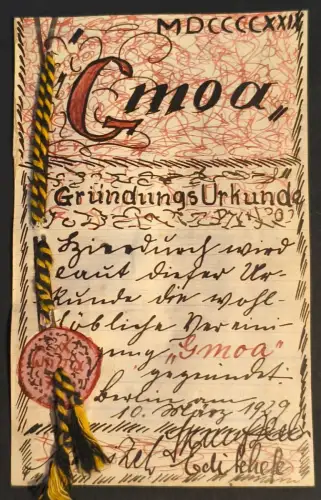 MDCCCCXXIX
„Gmoa„
GründungsUrkunde
Hierdurch wird
laut dieser Ur-
kunde die wohl-
löbliche Verein-
igung „Gmoa"
gegründet
Berlin am
10. März 1929